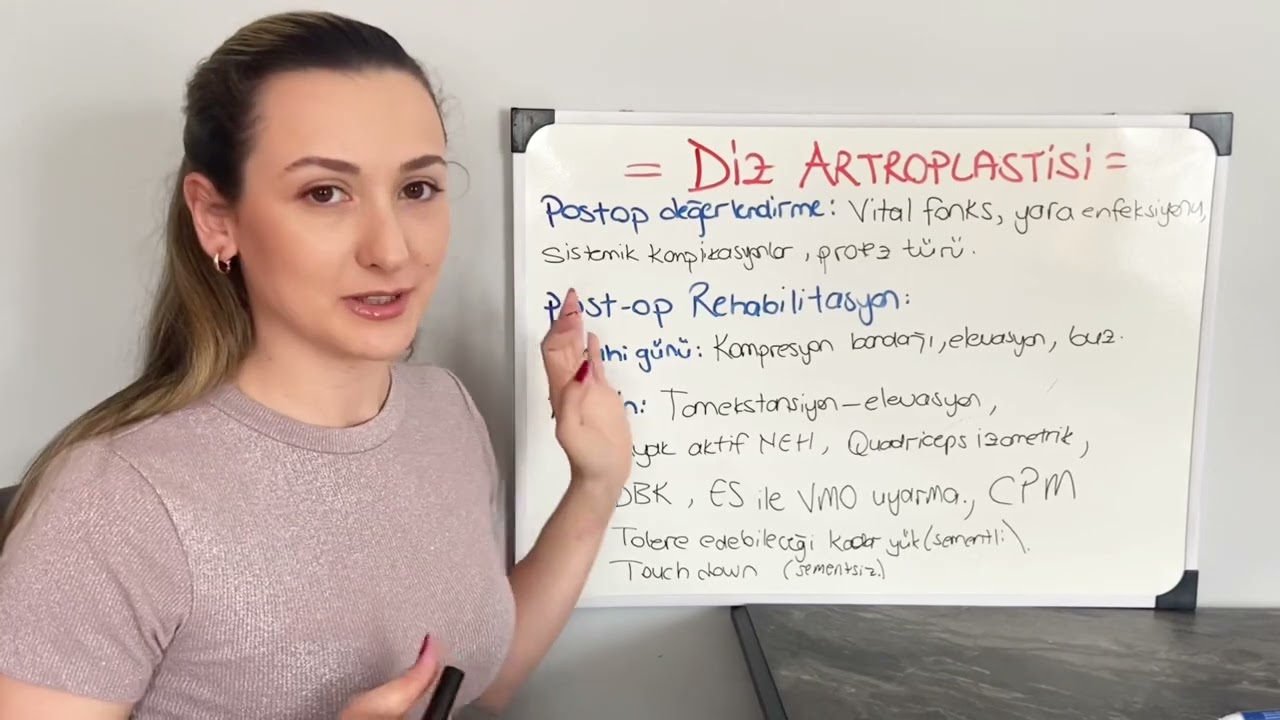 = DİZ ARTROPLASTİSİ =
Postop değerlendirme: Vital fonks, yara enfeksiyonu,
sistemik komplikasyonlar, protez türü.
Post-op Rehabilitasyon:
günü: Kompresyon bandajı, elevasyon, buz.
Tamekstansiyon-elevasyon,
aktif NEH, Quadriceps izometrik,
DBK, ES ile VMO uyarma., CPM
Tolere edebileceği kadar yük (sementli).
Touch down (sementsiz.)